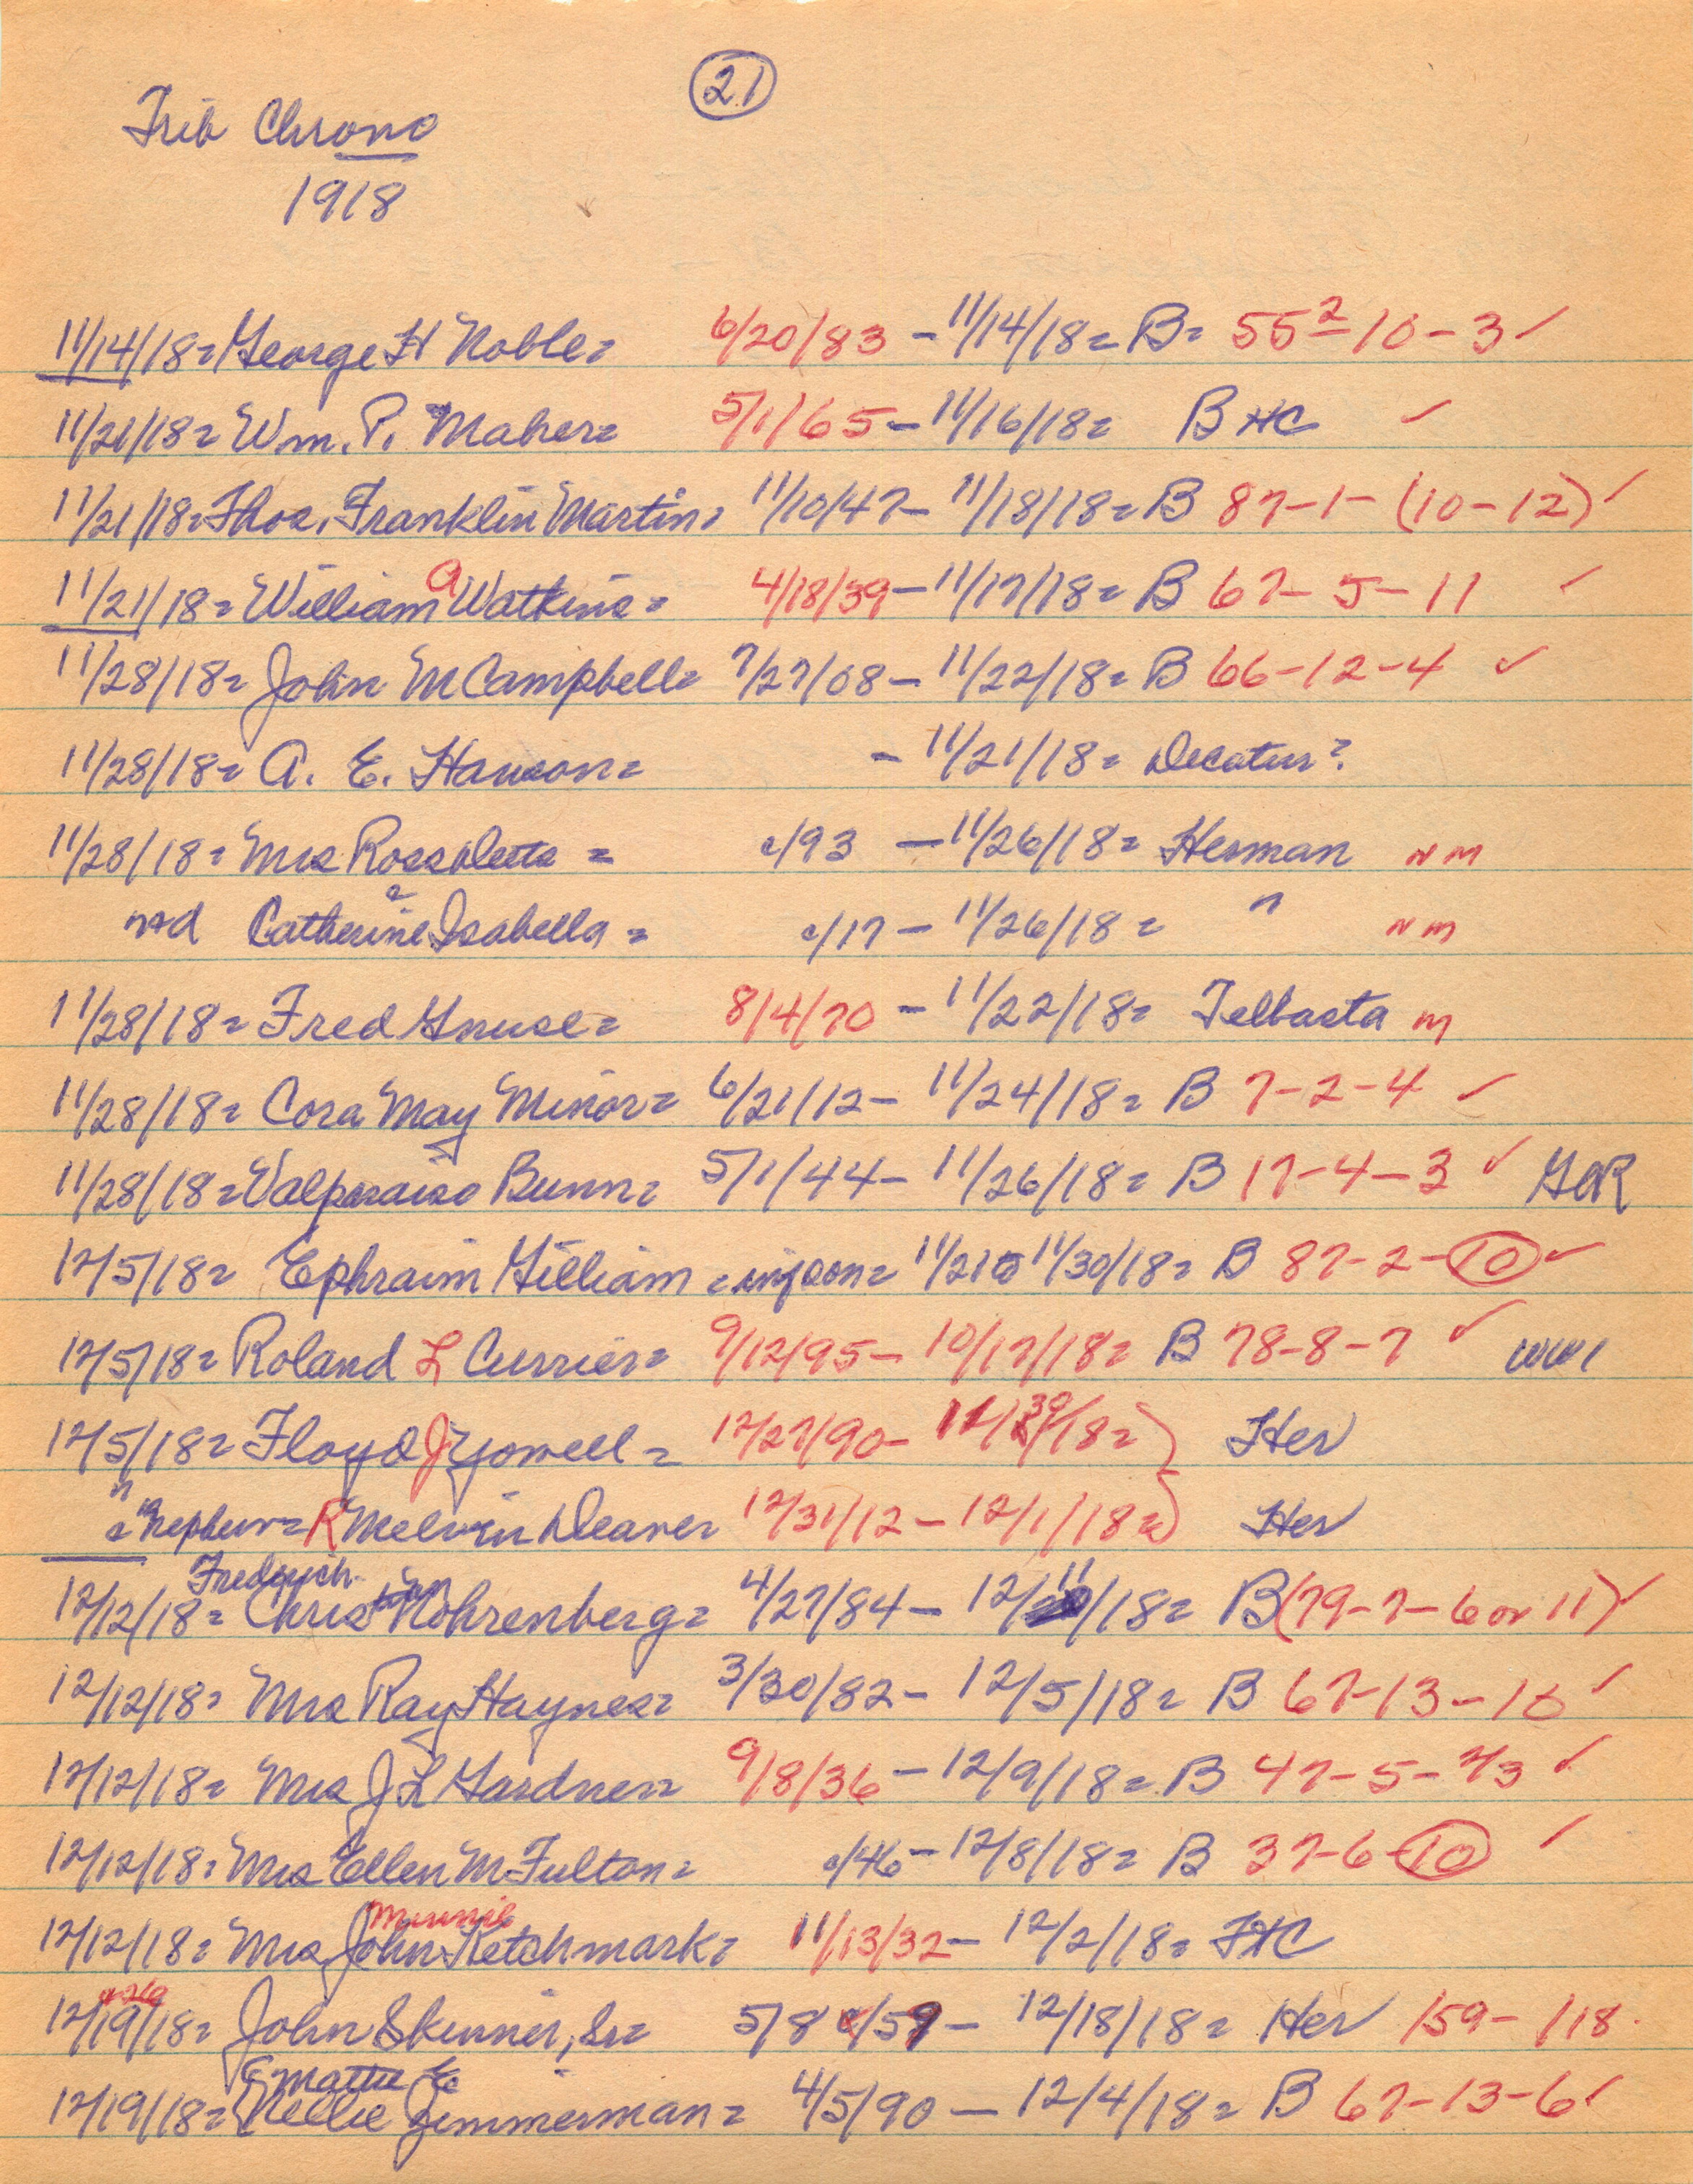 21
Trib Chrono
1918
11/14/18 = George H Noble = 6/20/83 - 11/14/18 = B = 55²-10-3 ✓
11/21/18 = Wm. P. Maher = 5/1/65 - 11/16/18 = B HC ✓
11/21/18 = Thos. Franklin Martin = 11/10/47 - 11/18/18 = B 87-1-(10-12) ✓
11/21/18 = William A Watkins = 4/18/39 - 11/17/18 = B 67-5-11 ✓
11/28/18 = John M Campbell = 7/27/08 - 11/22/18 = B 66-12-4 ✓
11/28/18 = A. E. Hanson = - 11/21/18 = Decatur?
11/28/18 = Mrs Ross = c/93 - 11/26/18 = Herman NM
Catherine Isabella = c/17 - 11/26/18 = " NM
11/28/18 = Fred Gnuse = 8/4/70 - 11/22/18 = Telbasta M
11/28/18 = Cora May Minor = 6/21/12 - 11/24/18 = B 7-2-4 ✓
11/28/18 = Valparaiso Bunn = 5/1/44 - 11/26/18 = B 17-4-3 ✓ GAR
12/5/18 = Ephraim Gilliam = inf son = 11/21 11/30/18 = B 87-2-10 ✓
12/5/18 = Roland L Currier = 9/12/95 - 10/17/18 = B 78-8-7 ✓ WW1
12/5/18 = Floyd J Yowell = 12/27/90 - 11/30/18 = ) Her
" = nephew = R Melvin Deaver 12/31/12 - 12/1/18 = ) Her
Fredrich
12/12/18 = Christian Nohrenberg = 4/27/84 - 12/11/18 = B (79-7-6 or 11) ✓
12/12/18 = Mrs Ray Haynes = 3/30/82 - 12/5/18 = B 67-13-10 ✓
12/12/18 = Mrs J L Gardner = 9/8/36 - 12/9/18 = B 47-5-2/3 ✓
12/12/18 = Mrs Ellen M Fulton = c/46 - 12/8/18 = B 37-6-10 ✓
Minnie
12/12/18 = Mrs John Ketchmark = 11/13/32 - 12/2/18 = FHC
12/19/18 = John Skinner, Sr = 5/8 /59 - 12/18/18 = Her /59-/18
Mattie E
12/19/18 = Nellie Zimmerman = 4/5/90 - 12/4/18 = B 67-13-6 ✓